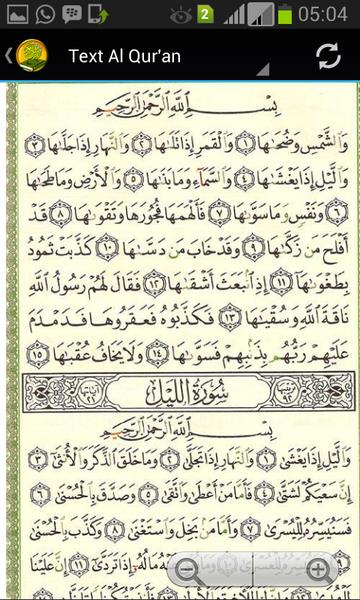 2
05:04
Text Al Qur'an
بِسْمِ اللَّهِ الرَّحْمَٰنِ الرَّحِيمِ
وَالشَّمْسِ وَضُحَىٰهَا ﴿١﴾ وَالْقَمَرِ إِذَا تَلَىٰهَا ﴿٢﴾ وَالنَّهَارِ إِذَا جَلَّىٰهَا ﴿٣﴾
وَاللَّيْلِ إِذَا يَغْشَىٰهَا ﴿٤﴾ وَالسَّمَاءِ وَمَا بَنَىٰهَا ﴿٥﴾ وَالْأَرْضِ وَمَا طَحَىٰهَا
﴿٦﴾ وَنَفْسٍ وَمَا سَوَّىٰهَا ﴿٧﴾ فَأَلْهَمَهَا فُجُورَهَا وَتَقْوَىٰهَا ﴿٨﴾ قَدْ
أَفْلَحَ مَن زَكَّىٰهَا ﴿٩﴾ وَقَدْ خَابَ مَن دَسَّىٰهَا ﴿١٠﴾ كَذَّبَتْ ثَمُودُ
بِطَغْوَىٰهَا ﴿١١﴾ إِذِ انبَعَثَ أَشْقَىٰهَا ﴿١٢﴾ فَقَالَ لَهُمْ رَسُولُ اللَّهِ
نَاقَةَ اللَّهِ وَسُقْيَٰهَا ﴿١٣﴾ فَكَذَّبُوهُ فَعَقَرُوهَا فَدَمْدَمَ
عَلَيْهِمْ رَبُّهُم بِذَنبِهِمْ فَسَوَّىٰهَا ﴿١٤﴾ وَلَا يَخَافُ عُقْبَٰهَا ﴿١٥﴾
سُورَةُ اللَّيْلِ
بِسْمِ اللَّهِ الرَّحْمَٰنِ الرَّحِيمِ
وَاللَّيْلِ إِذَا يَغْشَىٰ ﴿١﴾ وَالنَّهَارِ إِذَا تَجَلَّىٰ ﴿٢﴾ وَمَا خَلَقَ الذَّكَرَ وَالْأُنثَىٰ ﴿٣﴾
إِنَّ سَعْيَكُمْ لَشَتَّىٰ ﴿٤﴾ فَأَمَّا مَنْ أَعْطَىٰ وَاتَّقَىٰ ﴿٥﴾ وَصَدَّقَ بِالْحُسْنَىٰ ﴿٦﴾
فَسَنُيَسِّرُهُ لِلْيُسْرَىٰ ﴿٧﴾ وَأَمَّا مَن بَخِلَ وَاسْتَغْنَىٰ ﴿٨﴾ وَكَذَّبَ بِالْحُسْنَىٰ
﴿٩﴾ فَسَنُيَسِّرُهُ لِلْعُسْرَىٰ ﴿١٠﴾ وَمَا يُغْنِي عَنْهُ مَالُهُ إِذَا تَرَدَّىٰ ﴿١١﴾ إِنَّ عَلَيْنَا